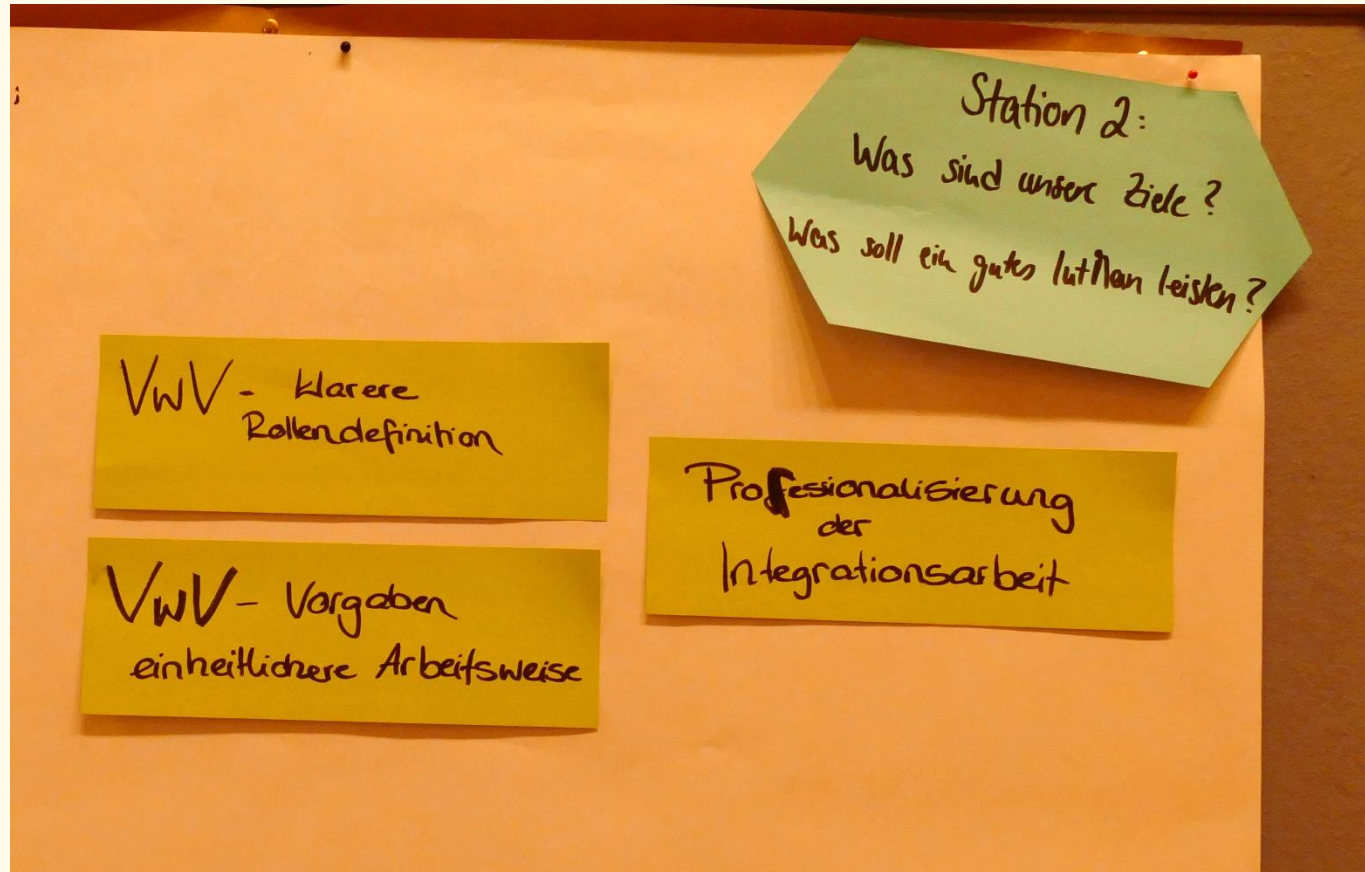 Station 2:
Was sind unsere Ziele?
Was soll ein gutes IntMan leisten?
VwV - klarere
Rollendefinition
VwV - Vorgaben
einheitlichere Arbeitsweise
Professionalisierung
der
Integrationsarbeit